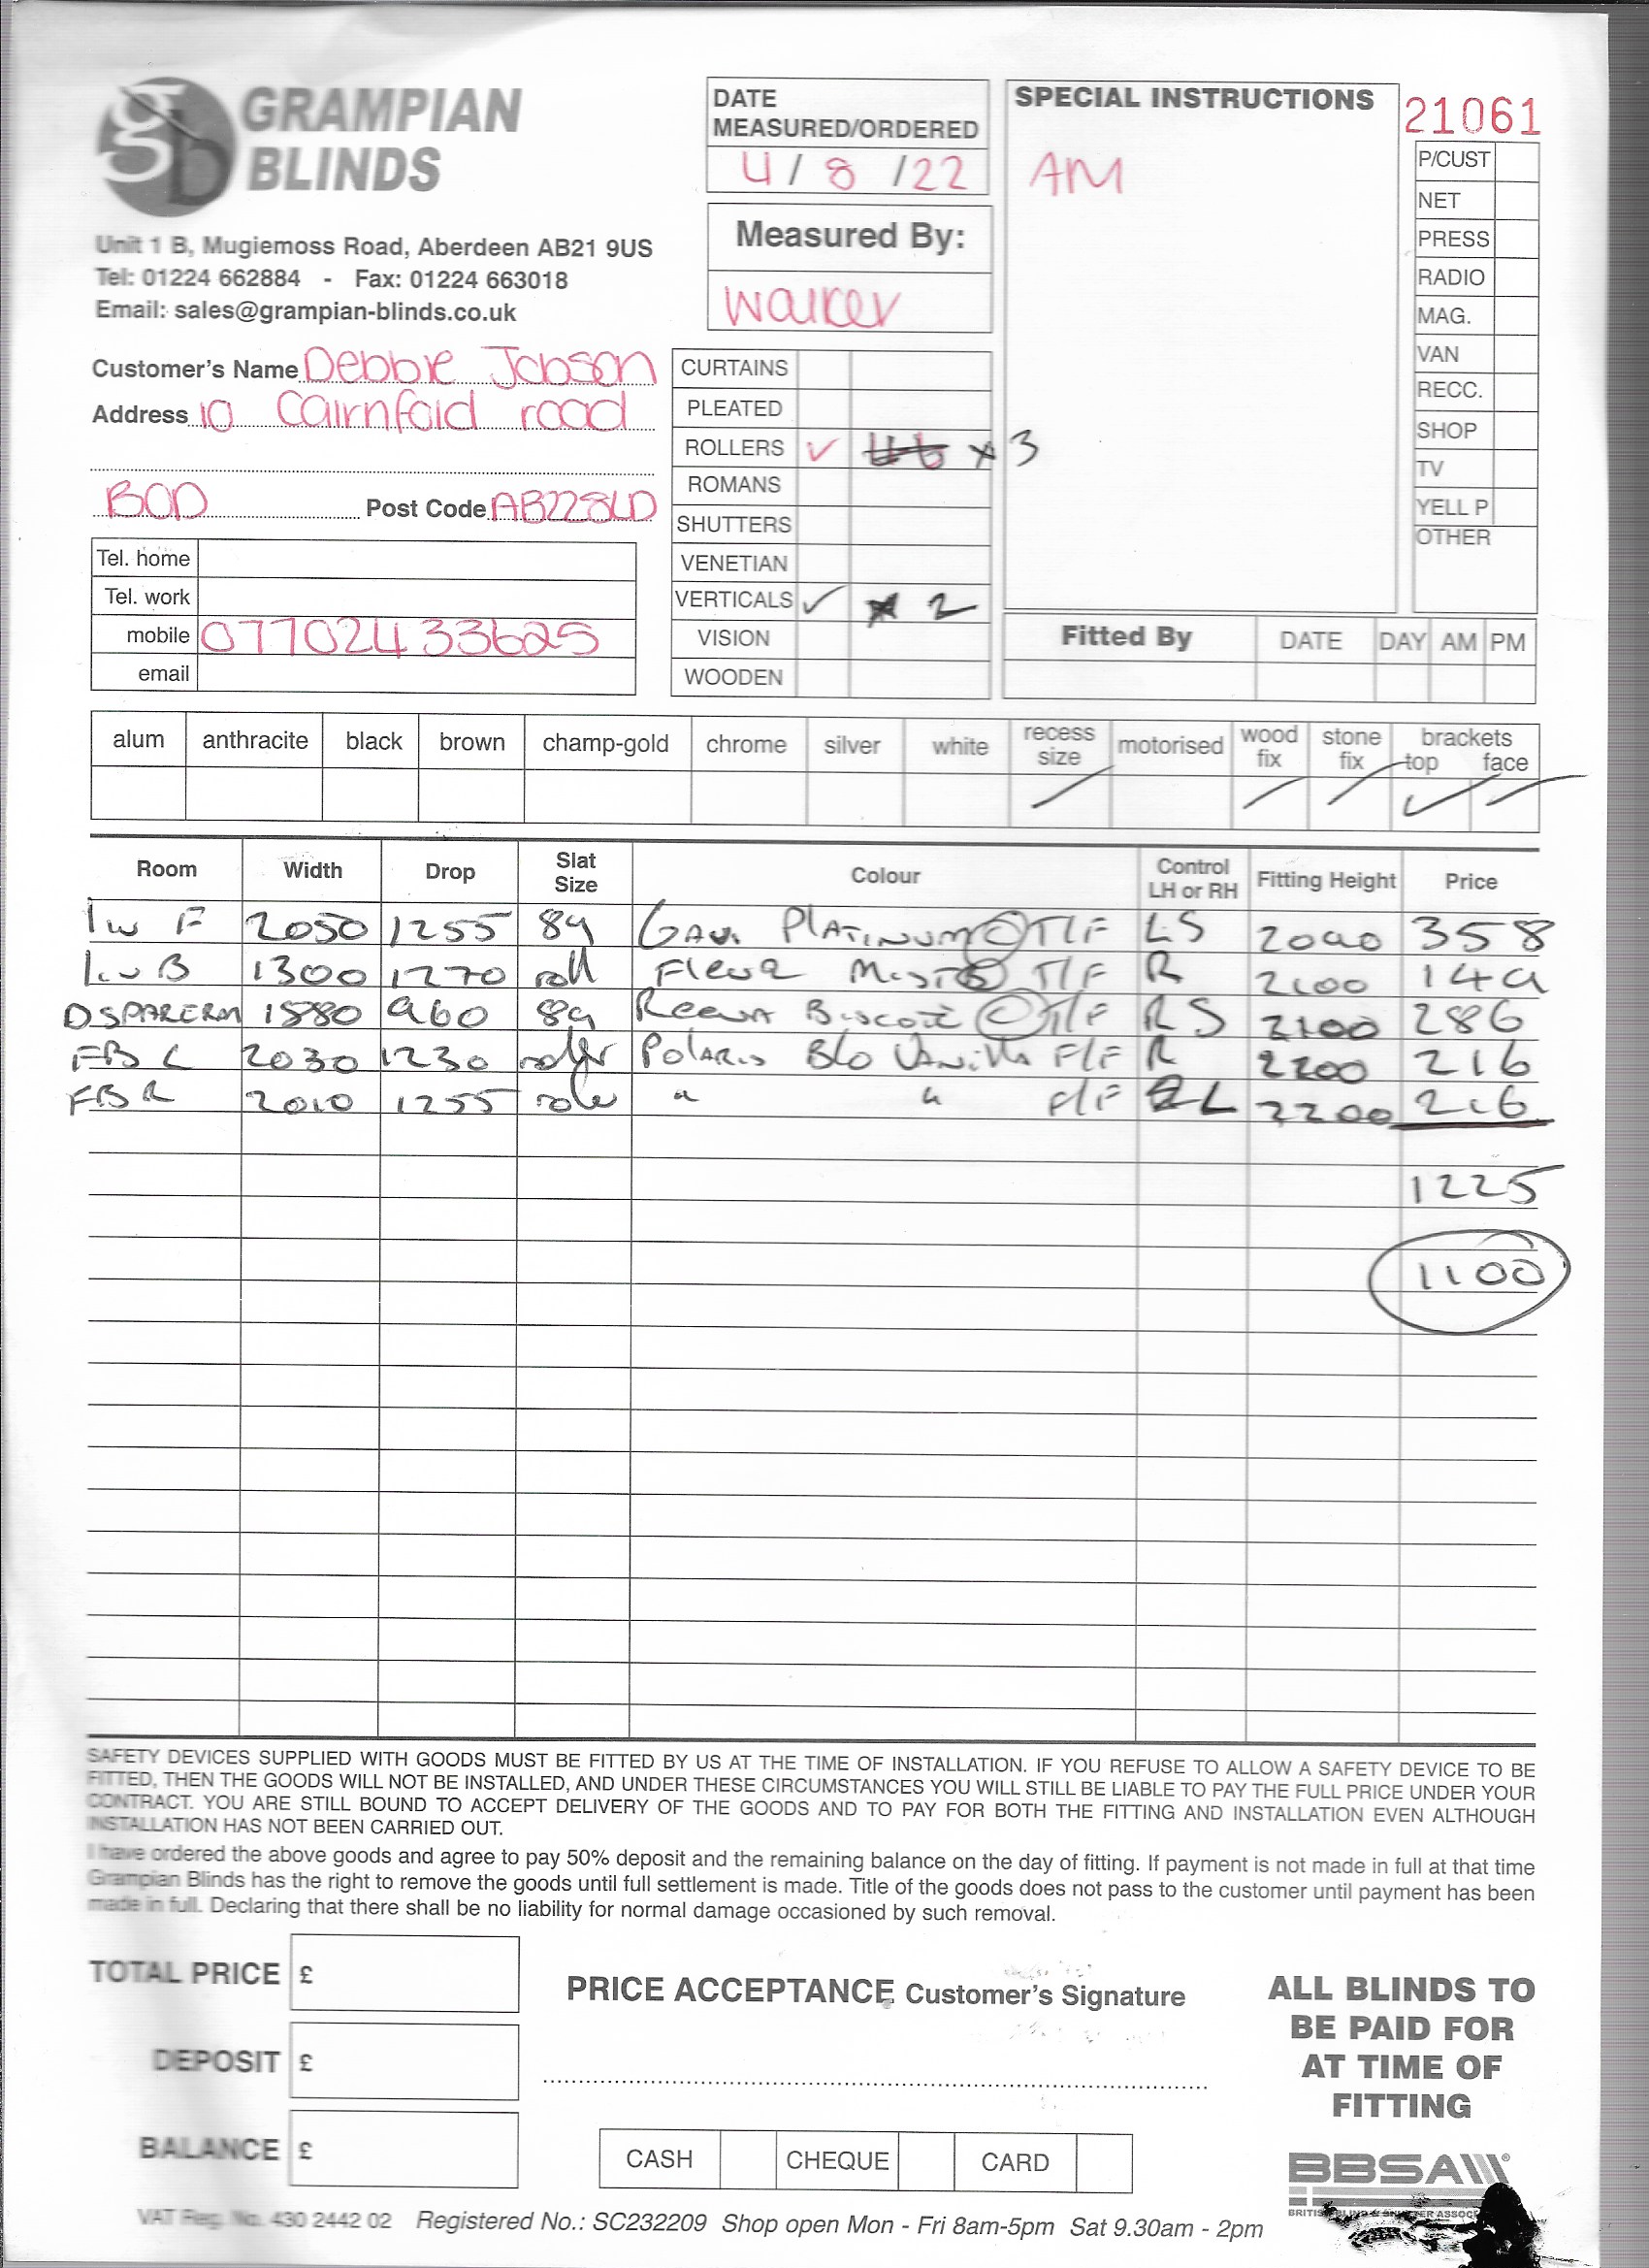 GRAMPIAN
BLINDS
Unit 1 B, Mugiemoss Road, Aberdeen AB21 9US
Tel: 01224 662884 - Fax: 01224 663018
Email: sales@grampian-blinds.co.uk
DATE
MEASURED/ORDERED
4 / 8 / 22
Measured By:
Walker
SPECIAL INSTRUCTIONS
AM
21061
P/CUST
NET
PRESS
RADIO
MAG.
VAN
RECC.
SHOP
TV
YELL P
OTHER
Customer's Name Debbie Jobson
Address 10 Cairnfold road
BOD Post Code AB228LD
Tel. home
Tel. work
mobile 07702433625
email
CURTAINS
PLEATED
ROLLERS ✓ x 3
ROMANS
SHUTTERS
VENETIAN
VERTICALS ✓ x 2
VISION
WOODEN
Fitted By DATE DAY AM PM
alum anthracite black brown champ-gold chrome silver white recess size motorised wood fix stone fix brackets top face
Room Width Drop Slat Size Colour Control LH or RH Fitting Height Price
F 2050 1255 89 PLATINUM C T/F LS 2000 358
B 1300 1270 roll T/F R 2100 149
DSPARERM 1580 960 89 C T/F RS 2100 286
FB L 2030 1230 roller Polaris B/o Vanilla F/F R 2200 216
FB R 2010 1255 roller " " F/F L 2200 216
1225
1100
SAFETY DEVICES SUPPLIED WITH GOODS MUST BE FITTED BY US AT THE TIME OF INSTALLATION. IF YOU REFUSE TO ALLOW A SAFETY DEVICE TO BE
FITTED, THEN THE GOODS WILL NOT BE INSTALLED, AND UNDER THESE CIRCUMSTANCES YOU WILL STILL BE LIABLE TO PAY THE FULL PRICE UNDER YOUR
CONTRACT. YOU ARE STILL BOUND TO ACCEPT DELIVERY OF THE GOODS AND TO PAY FOR BOTH THE FITTING AND INSTALLATION EVEN ALTHOUGH
INSTALLATION HAS NOT BEEN CARRIED OUT.
I have ordered the above goods and agree to pay 50% deposit and the remaining balance on the day of fitting. If payment is not made in full at that time
Grampian Blinds has the right to remove the goods until full settlement is made. Title of the goods does not pass to the customer until payment has been
made in full. Declaring that there shall be no liability for normal damage occasioned by such removal.
TOTAL PRICE £
DEPOSIT £
BALANCE £
PRICE ACCEPTANCE Customer's Signature
CASH CHEQUE CARD
ALL BLINDS TO
BE PAID FOR
AT TIME OF
FITTING
BBSA
VAT Reg. No. 430 2442 02 Registered No.: SC232209 Shop open Mon - Fri 8am-5pm Sat 9.30am - 2pm